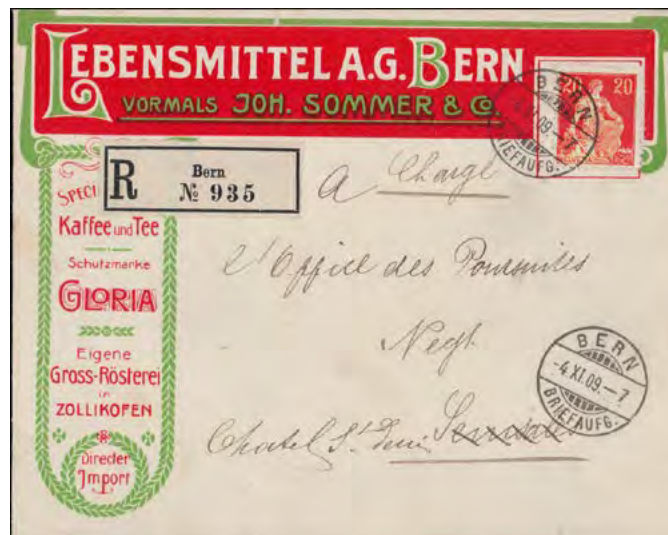 LEBENSMITTEL A.G. BERN
VORMALS JOH. SOMMER & Co.
20 20
BERN
4.XI.09.-7
BRIEFAUFG.
R
Bern
№ 935
SPECI
Kaffee und Tee
Schutzmarke
GLORIA
Eigene
Gross-Rösterei
in
ZOLLIKOFEN
Directer
Import
A Chargé
l'Office des Poursuites
Chatel St. Denis
BERN
-4.XI.09.-7
BRIEFAUFG.